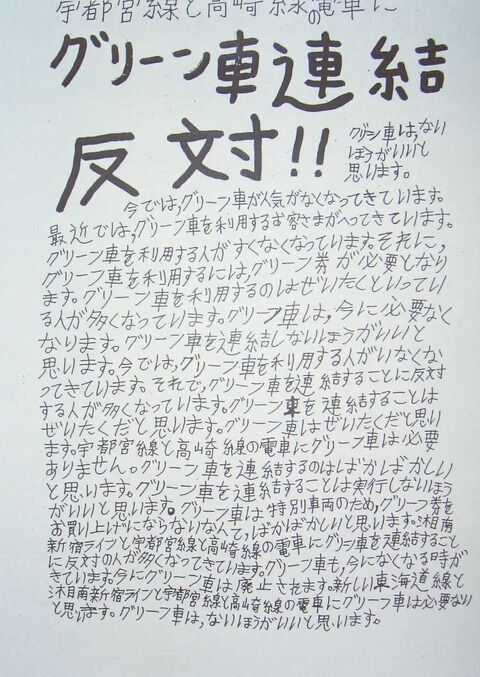 宇都宮線と高崎線の電車に
グリーン車連結
反対!!
グリーン車は,ない
ほうがいいと
思います。
今では,グリーン車が人気がなくなってきています。
最近では,グリーン車を利用するお客さまがへってきています。
グリーン車を利用する人がすくなくなっています。それに,
グリーン車を利用するには,グリーン券が必要となり
ます。グリーン車を利用するのはぜいたくといってい
る人が多くなっています。グリーン車は,今に必要なく
なります。グリーン車を連結しないほうがいいと
思います。今では,グリーン車を利用する人がいなくな
ってきています。それで,グリーン車を連結することに反対
する人が多くなっています。グリーン車を連結することは
ぜいたくだと思います。グリーン車はぜいたくだと思い
ます。宇都宮線と高崎線の電車にグリーン車は必要
ありません。グリーン車を連結するのはばかばかしい
と思います。グリーン車を連結することは実行しないほう
がいいと思います。グリーン車は特別車両のため,グリーン券を
お買い上げにならないなんて,ばかばかしいと思います。湘南
新宿ラインと宇都宮線と高崎線の電車にグリーン車を連結すること
に反対の人が多くなっています。グリーン車も,今になくなる時が
きています。今にグリーン車は廃止されます。新しい東海道線と
湘南新宿ラインと宇都宮線と高崎線の電車にグリーン車は必要ない
と思います。グリーン車は,ないほうがいいと思います。